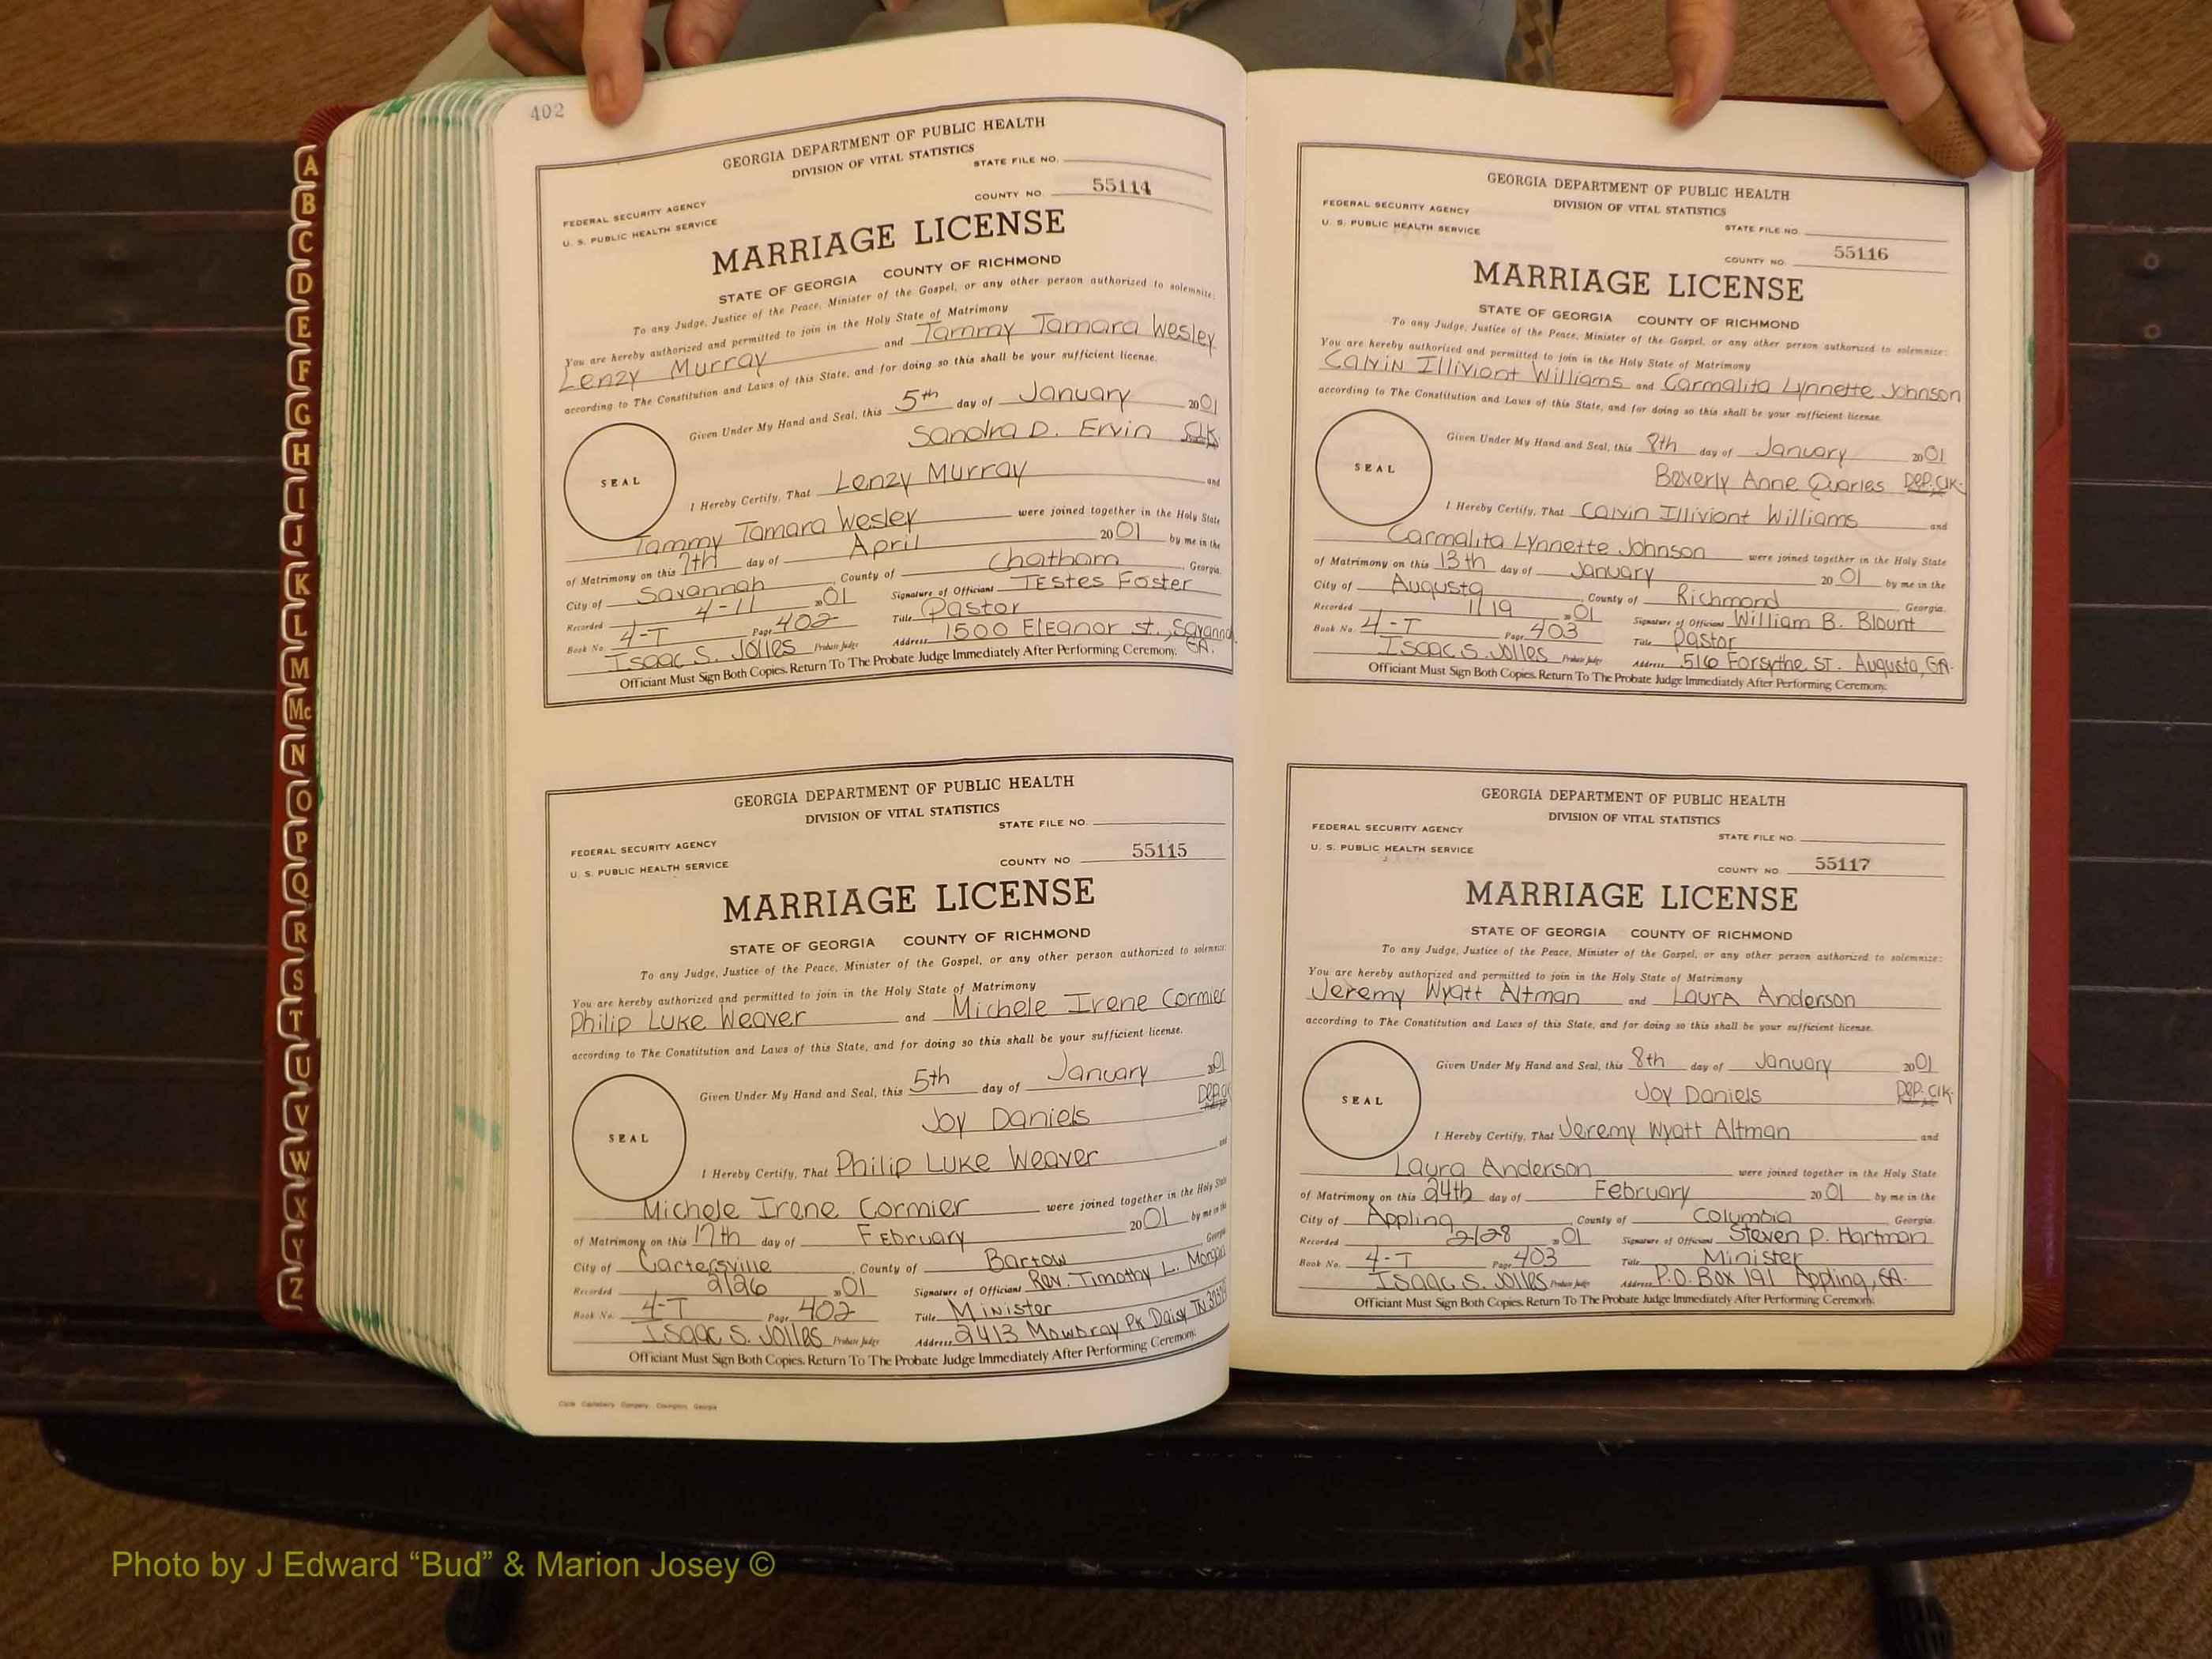 402
A
B
C
D
E
F
G
H
I
J
K
L
M
Mc
N
O
P
Q
R
S
T
U
V
W
X
Y
Z
GEORGIA DEPARTMENT OF PUBLIC HEALTH
DIVISION OF VITAL STATISTICS
STATE FILE NO.
COUNTY NO 55114
FEDERAL SECURITY AGENCY
U. S. PUBLIC HEALTH SERVICE
MARRIAGE LICENSE
STATE OF GEORGIA COUNTY OF RICHMOND
To any Judge, Justice of the Peace, Minister of the Gospel, or any other person authorized to solemnize:
You are hereby authorized and permitted to join in the Holy State of Matrimony
Lenzy Murray and Tammy Tamara Wesley
according to The Constitution and Laws of this State, and for doing so this shall be your sufficient license.
Given Under My Hand and Seal, this 5th day of January 2001
Sandra D. Ervin Clk
SEAL
I Hereby Certify, That Lenzy Murray and
Tammy Tamara Wesley were joined together in the Holy State
of Matrimony on this 7th day of April 2001 by me in the
City of Savannah, County of Chatham, Georgia.
Recorded 4-11 2001 Signature of Officiant TEstes Foster
Book No. 4-T Page 402 Title Pastor
Isaac S. Jolles Probate Judge Address 1500 Eleanor St., Savanna GA.
Officiant Must Sign Both Copies. Return To The Probate Judge Immediately After Performing Ceremony.
GEORGIA DEPARTMENT OF PUBLIC HEALTH
DIVISION OF VITAL STATISTICS
STATE FILE NO.
COUNTY NO 55115
FEDERAL SECURITY AGENCY
U. S. PUBLIC HEALTH SERVICE
MARRIAGE LICENSE
STATE OF GEORGIA COUNTY OF RICHMOND
To any Judge, Justice of the Peace, Minister of the Gospel, or any other person authorized to solemnize:
You are hereby authorized and permitted to join in the Holy State of Matrimony
Philip Luke Weaver and Michele Irene Cormier
according to The Constitution and Laws of this State, and for doing so this shall be your sufficient license.
Given Under My Hand and Seal, this 5th day of January 2001
Joy Daniels Dep. Clk
SEAL
I Hereby Certify, That Philip Luke Weaver and
Michele Irene Cormier were joined together in the Holy State
of Matrimony on this 17th day of February 2001 by me in the
City of Cartersville, County of Bartow Georgia
Recorded 2/26 2001 Signature of Officiant Rev. Timothy L. Morgan
Book No. 4-T Page 402 Title Minister
Isaac S. Jolles Probate Judge Address 2413 Mowbray Pk Daisy TN
Officiant Must Sign Both Copies. Return To The Probate Judge Immediately After Performing Ceremony.
Covington, Georgia
GEORGIA DEPARTMENT OF PUBLIC HEALTH
DIVISION OF VITAL STATISTICS
FEDERAL SECURITY AGENCY
U. S. PUBLIC HEALTH SERVICE
STATE FILE NO.
COUNTY NO. 55116
MARRIAGE LICENSE
STATE OF GEORGIA COUNTY OF RICHMOND
To any Judge, Justice of the Peace, Minister of the Gospel, or any other person authorized to solemnize:
You are hereby authorized and permitted to join in the Holy State of Matrimony
Calvin Illiviont Williams and Carmalita Lynnette Johnson
according to The Constitution and Laws of this State, and for doing so this shall be your sufficient license.
Given Under My Hand and Seal, this 8th day of January 2001
Beverly Anne Quarles Dep. Clk.
SEAL
I Hereby Certify, That Calvin Illiviont Williams and
Carmalita Lynnette Johnson were joined together in the Holy State
of Matrimony on this 13th day of January 2001 by me in the
City of Augusta, County of Richmond, Georgia.
Recorded 1/19 2001 Signature of Officiant William B. Blount
Book No. 4-T Page 403 Title Pastor
Isaac S. Jolles Probate Judge Address 516 Forsythe St. Augusta, GA.
Officiant Must Sign Both Copies. Return To The Probate Judge Immediately After Performing Ceremony.
GEORGIA DEPARTMENT OF PUBLIC HEALTH
DIVISION OF VITAL STATISTICS
FEDERAL SECURITY AGENCY
U. S. PUBLIC HEALTH SERVICE
STATE FILE NO.
COUNTY NO. 55117
MARRIAGE LICENSE
STATE OF GEORGIA COUNTY OF RICHMOND
To any Judge, Justice of the Peace, Minister of the Gospel, or any other person authorized to solemnize:
You are hereby authorized and permitted to join in the Holy State of Matrimony
Jeremy Wyatt Altman and Laura Anderson
according to The Constitution and Laws of this State, and for doing so this shall be your sufficient license.
Given Under My Hand and Seal, this 8th day of January 2001
Joy Daniels Dep. Clk.
SEAL
I Hereby Certify, That Jeremy Wyatt Altman and
Laura Anderson were joined together in the Holy State
of Matrimony on this 24th day of February 2001 by me in the
City of Appling, County of Columbia Georgia.
Recorded 2/28 2001 Signature of Officiant Steven P. Hartman
Book No. 4-T Page 403 Title Minister
Isaac S. Jolles Probate Judge Address P.O. Box 191 Appling, GA.
Officiant Must Sign Both Copies. Return To The Probate Judge Immediately After Performing Ceremony.
Photo by J Edward “Bud” & Marion Josey ©